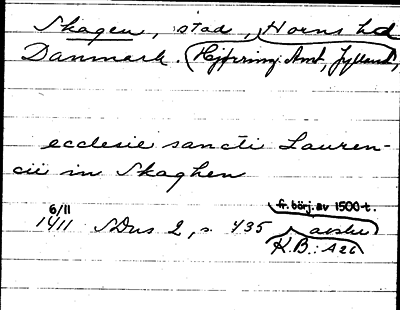 Skagen, stad, Horns hd
Danmark. (Hjørring Amt, Jylland)
ecclesie sancti Lauren-
cii in Skaghen
6/11 fr. börj. av 1500-t.
1411 SDns 2, s. 435 avskr
K.B.: A 26